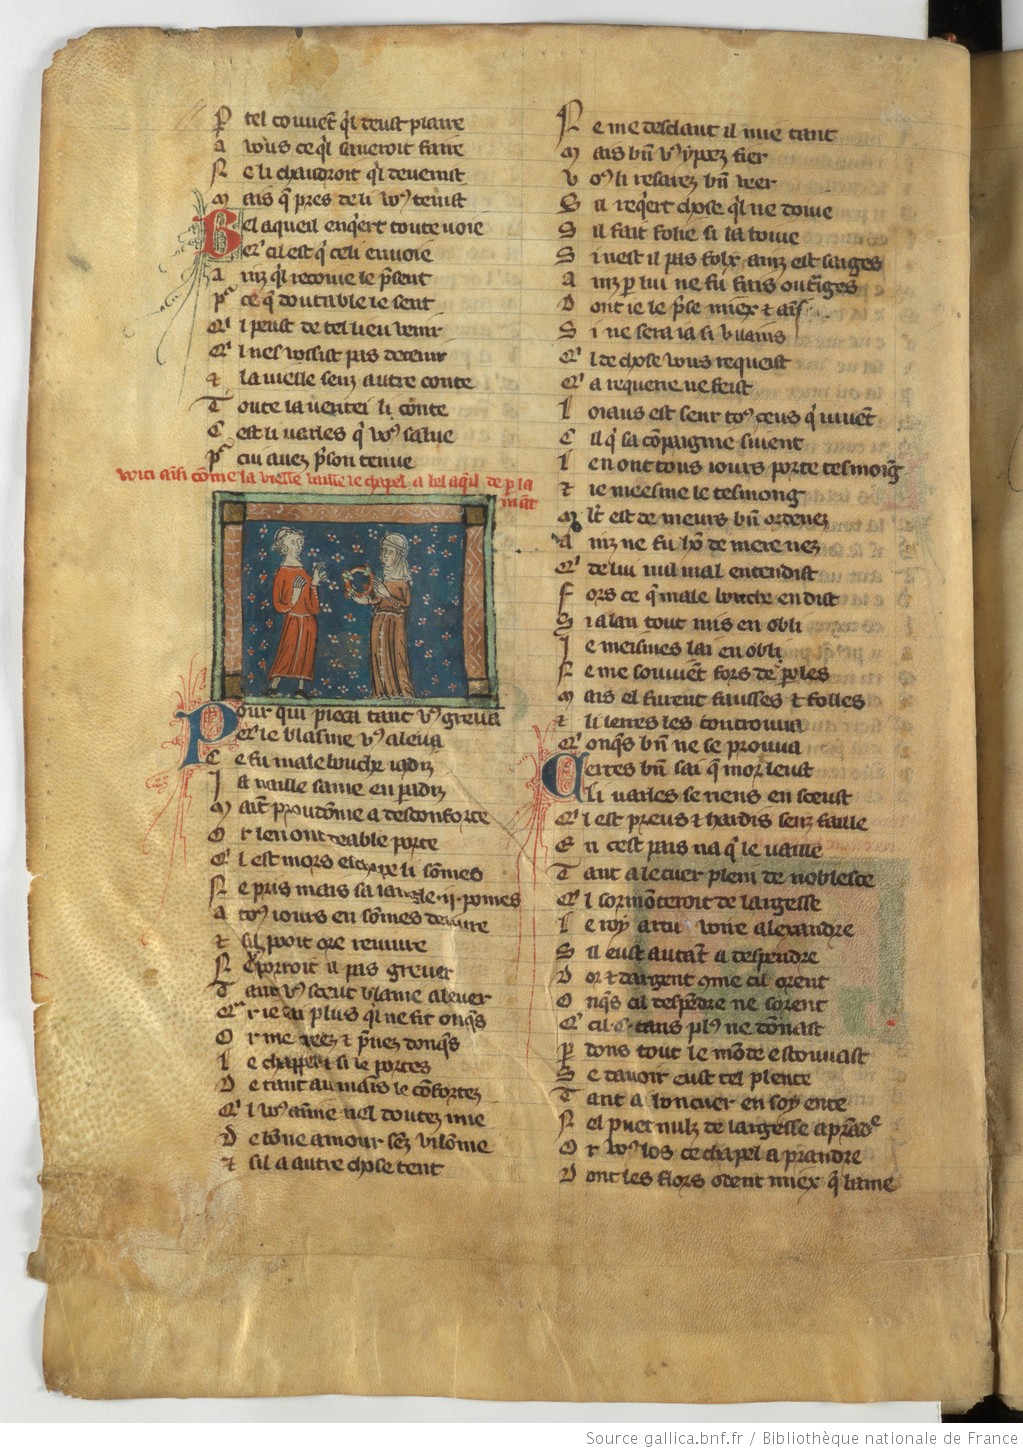 P tel couuēt q'l deust plaire
A vous ce q'l saueroit faire
N e li chaudroit q'l deuenist
M ais q̄ pres de li vꝰ tenist
Bel aqueil enq'ert toute uoie
er' cil est q' celi enuoie
A inz q'l recoiue le p̄sent
P' ce q̄ doutable le sent
Q' l peust de tel lieu uenir
Q' l nel vossist pas detenir
Et la uielle senz autre conte
T oute la uerite li conte
C est li uarles q' vꝰ salue
P' cui auez p̄son tenue
Vcici ainsi cōme la vieille baille le chapel a bel aq'l de p la
māt
Pour qui pieca tant vꝰ greua
er' le blasme vꝰ aleua
C e fu malebouche iadiz
J a naille same en paradiz
M aīt proudōme a desconforte
O r len ont deable porte
Q' l est mors eschape li sōmes
N e pris mais sa iangle .ii. pomes
A toꝰ iours en sōmes deliure
Et sil pooit ore reuiure
N e porroit il pas greuer
T ant vꝰ sceust blame aleuer
Q' r ie sai plus q'l ne fit onq̄s
O r me creez et p̄nez donq̄s
L e chappel et si le portes
D e tant au mais le cōfortez
Q' l vꝰ aīme nel doutez mie
D e bōne amour sēz vilōnie
Et sil a autre chose tent
N e me desclaut il mie tant
M ais bn̄ vꝰ y poez fier
V oꝰ li resarez bn̄ veer
S il req'ert chose q'l ne doiue
S il fait folie si la boiue
S i nest il pas folx ainz est saiges
A inz p lui ne fu fais out'ges
D ont ie le p̄se miex et aīs
S i ne sera ia si vilains
Q' l de chose vous requeist
Q' a requerre ne feist
L oiaus est seur toꝰ ceus q' uiuēt
C il q' sa cōpaignie siuent
L en ont tous iours porte tesmoīg
Et ie meesme le tesmong
M lt' est de meurs bn̄ ordenez
A inz ne fu hō de mere nez
Q' de lui nul mal entendist
F ors ce q̄ male bouche en dist
S i a lan tout mis en obli
J e meismes lai en obli
N e me souuēt fors de poles
M ais el furent fausses et folles
Et li lerres les controuua
Q' onq̄s bn̄ ne se prouua
Certes bn̄ sai q̄ mor leust
li uarles se riens en sceust
Q' l est preus et hardis senz faille
E n cest pais na q' le uaille
T ant a le cuer plein de noblesce
Q' l sormōteroit de largesse
L e roy artu voire alexandre
S il eust autāt a despendre
D or et dargent 9me cil orent
O nq̄s cil despēdre ne sorent
Q' cil .c. tans plꝰ ne dōnast
P dons tout le mōde estouuast
S e dauoir eust tel plente
T ant a bon cuer en soy ente
N el puet nulz de largesse aprādre
O r vꝰ los ce chapel a prandre
D ont les flors odent miex q̄ bame
Source gallica.bnf.fr / Bibliothèque nationale de France